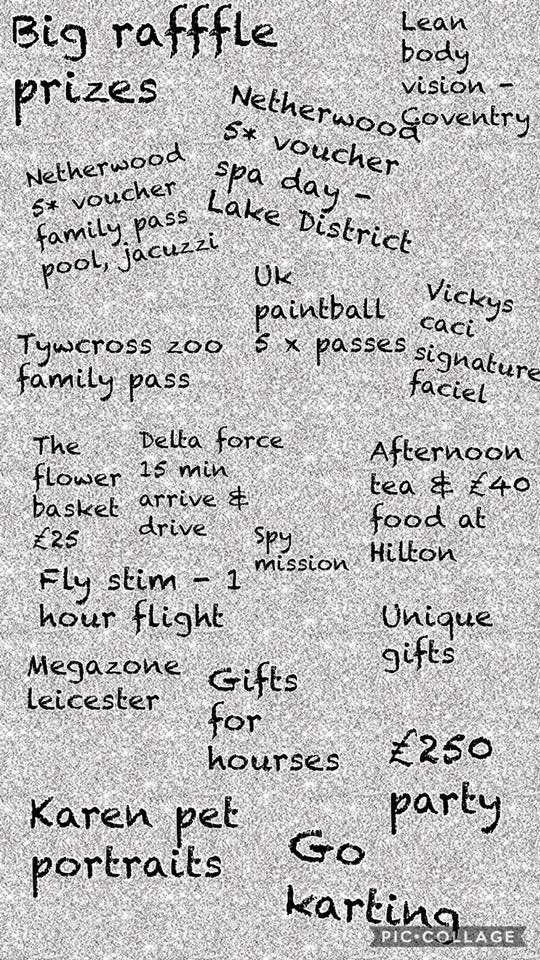 Big rafffle
prizes
Lean
body
vision -
Coventry
Netherwood
5* voucher
spa day -
Lake District
Netherwood
5* voucher
family pass
pool, jacuzzi
Uk
paintball
5 x passes
Vickys
caci
signature
faciel
Tywcross zoo
family pass
The
flower
basket
£25
Delta force
15 min
arrive &
drive
Afternoon
tea & £40
food at
Hilton
Spy
mission
Fly stim - 1
hour flight
Unique
gifts
Megazone
leicester
Gifts
for
hourses
£250
party
Karen pet
portraits
Go
karting
PIC•COLLAGE